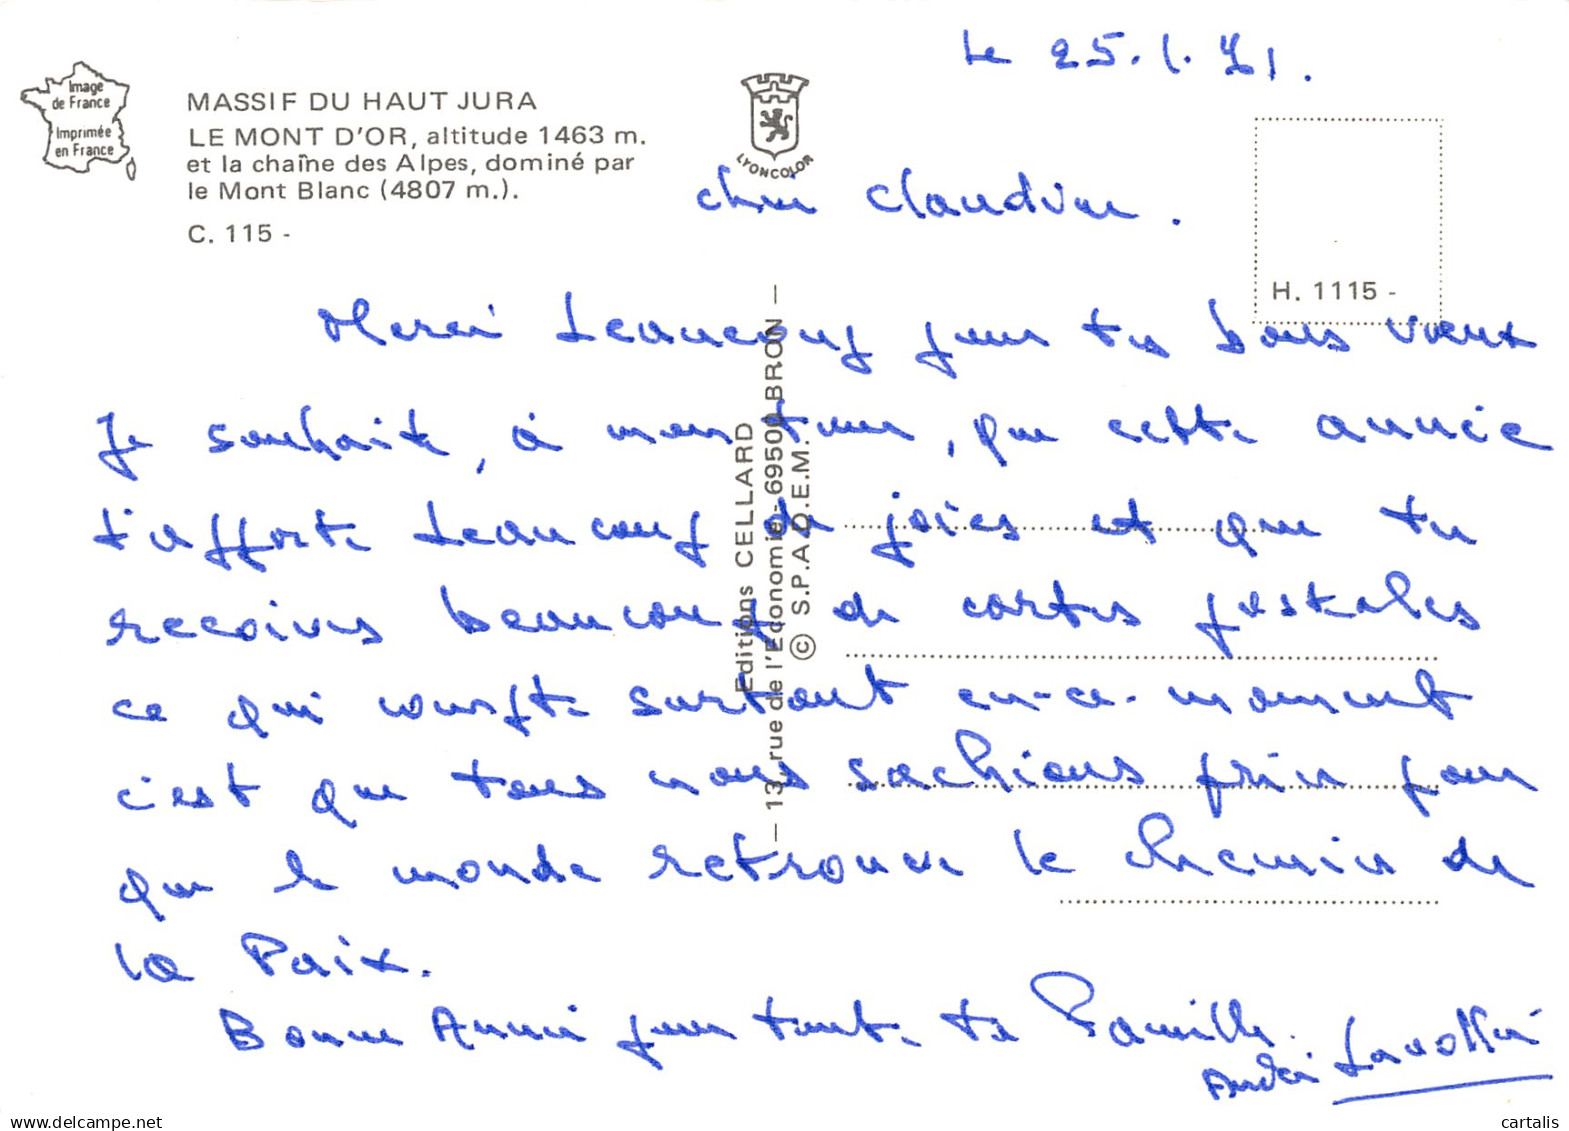 Le 25.1.91.
Image
de France
Imprimée
en France
MASSIF DU HAUT JURA
LE MONT D'OR, altitude 1463 m.
et la chaîne des Alpes, dominé par
le Mont Blanc (4807 m.).
C. 115 -
LYONCOLOR
H. 1115 -
Editions CELLARD
— 13, rue de l'Economie - 69500 BRON —
© S.P.A.D.E.M.
Cher Claudien.
Merci beaucoup pour tes bons vœux
Je souhaite, à mon tour, que cette année
t'apporte beaucoup de joies et que tu
reçoives beaucoup de cartes postales
ce qui compte surtout en-ce-moment
c'est que tous nous sachions prier pour
que le monde retrouve le chemin de
la Paix.
Bonne Année pour toute ta Famille.
André
cartalis